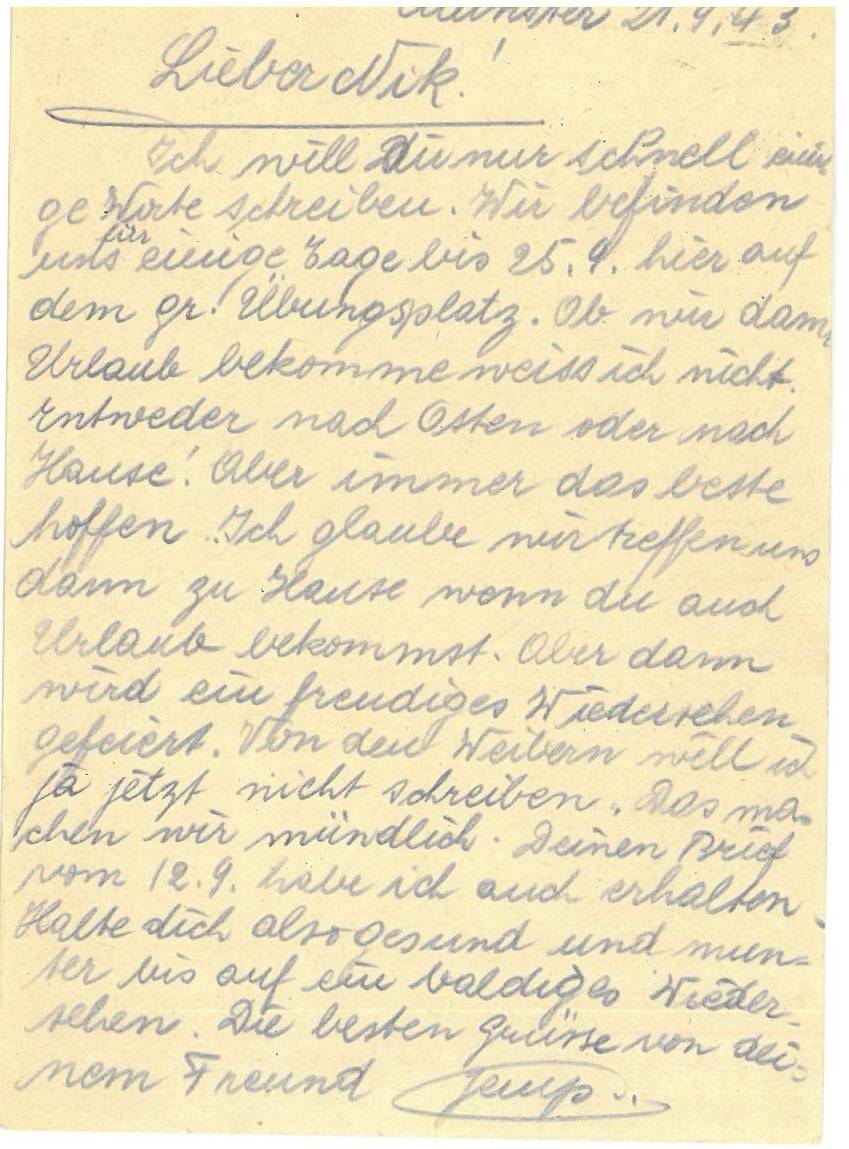 Munster 21.9.43.
Lieber Nik!
Ich will Du nur schnell eini
ge Worte schreiben. Wir befinden
uns für einige Tage bis 25.9. hier auf
dem gr. Übungsplatz. Ob wir dann
Urlaub bekomme weiss ich nicht.
Entweder nach Osten oder nach
Hause! Aber immer das beste
hoffen. Ich glaube wir treffen uns
dann zu Hause wenn du auch
Urlaub bekommst. Aber dann
wird ein freudiges Wiedersehen
gefeiert. Von den Weibern will ich
ja jetzt nicht schreiben. Das ma-
chen wir mündlich. Deinen Brief
vom 12.9. habe ich auch erhalten.
Halte dich also gesund und mun-
ter bis auf ein baldiges Wieder-
sehen. Die besten Grüsse von dei-
nem Freund Jemp..